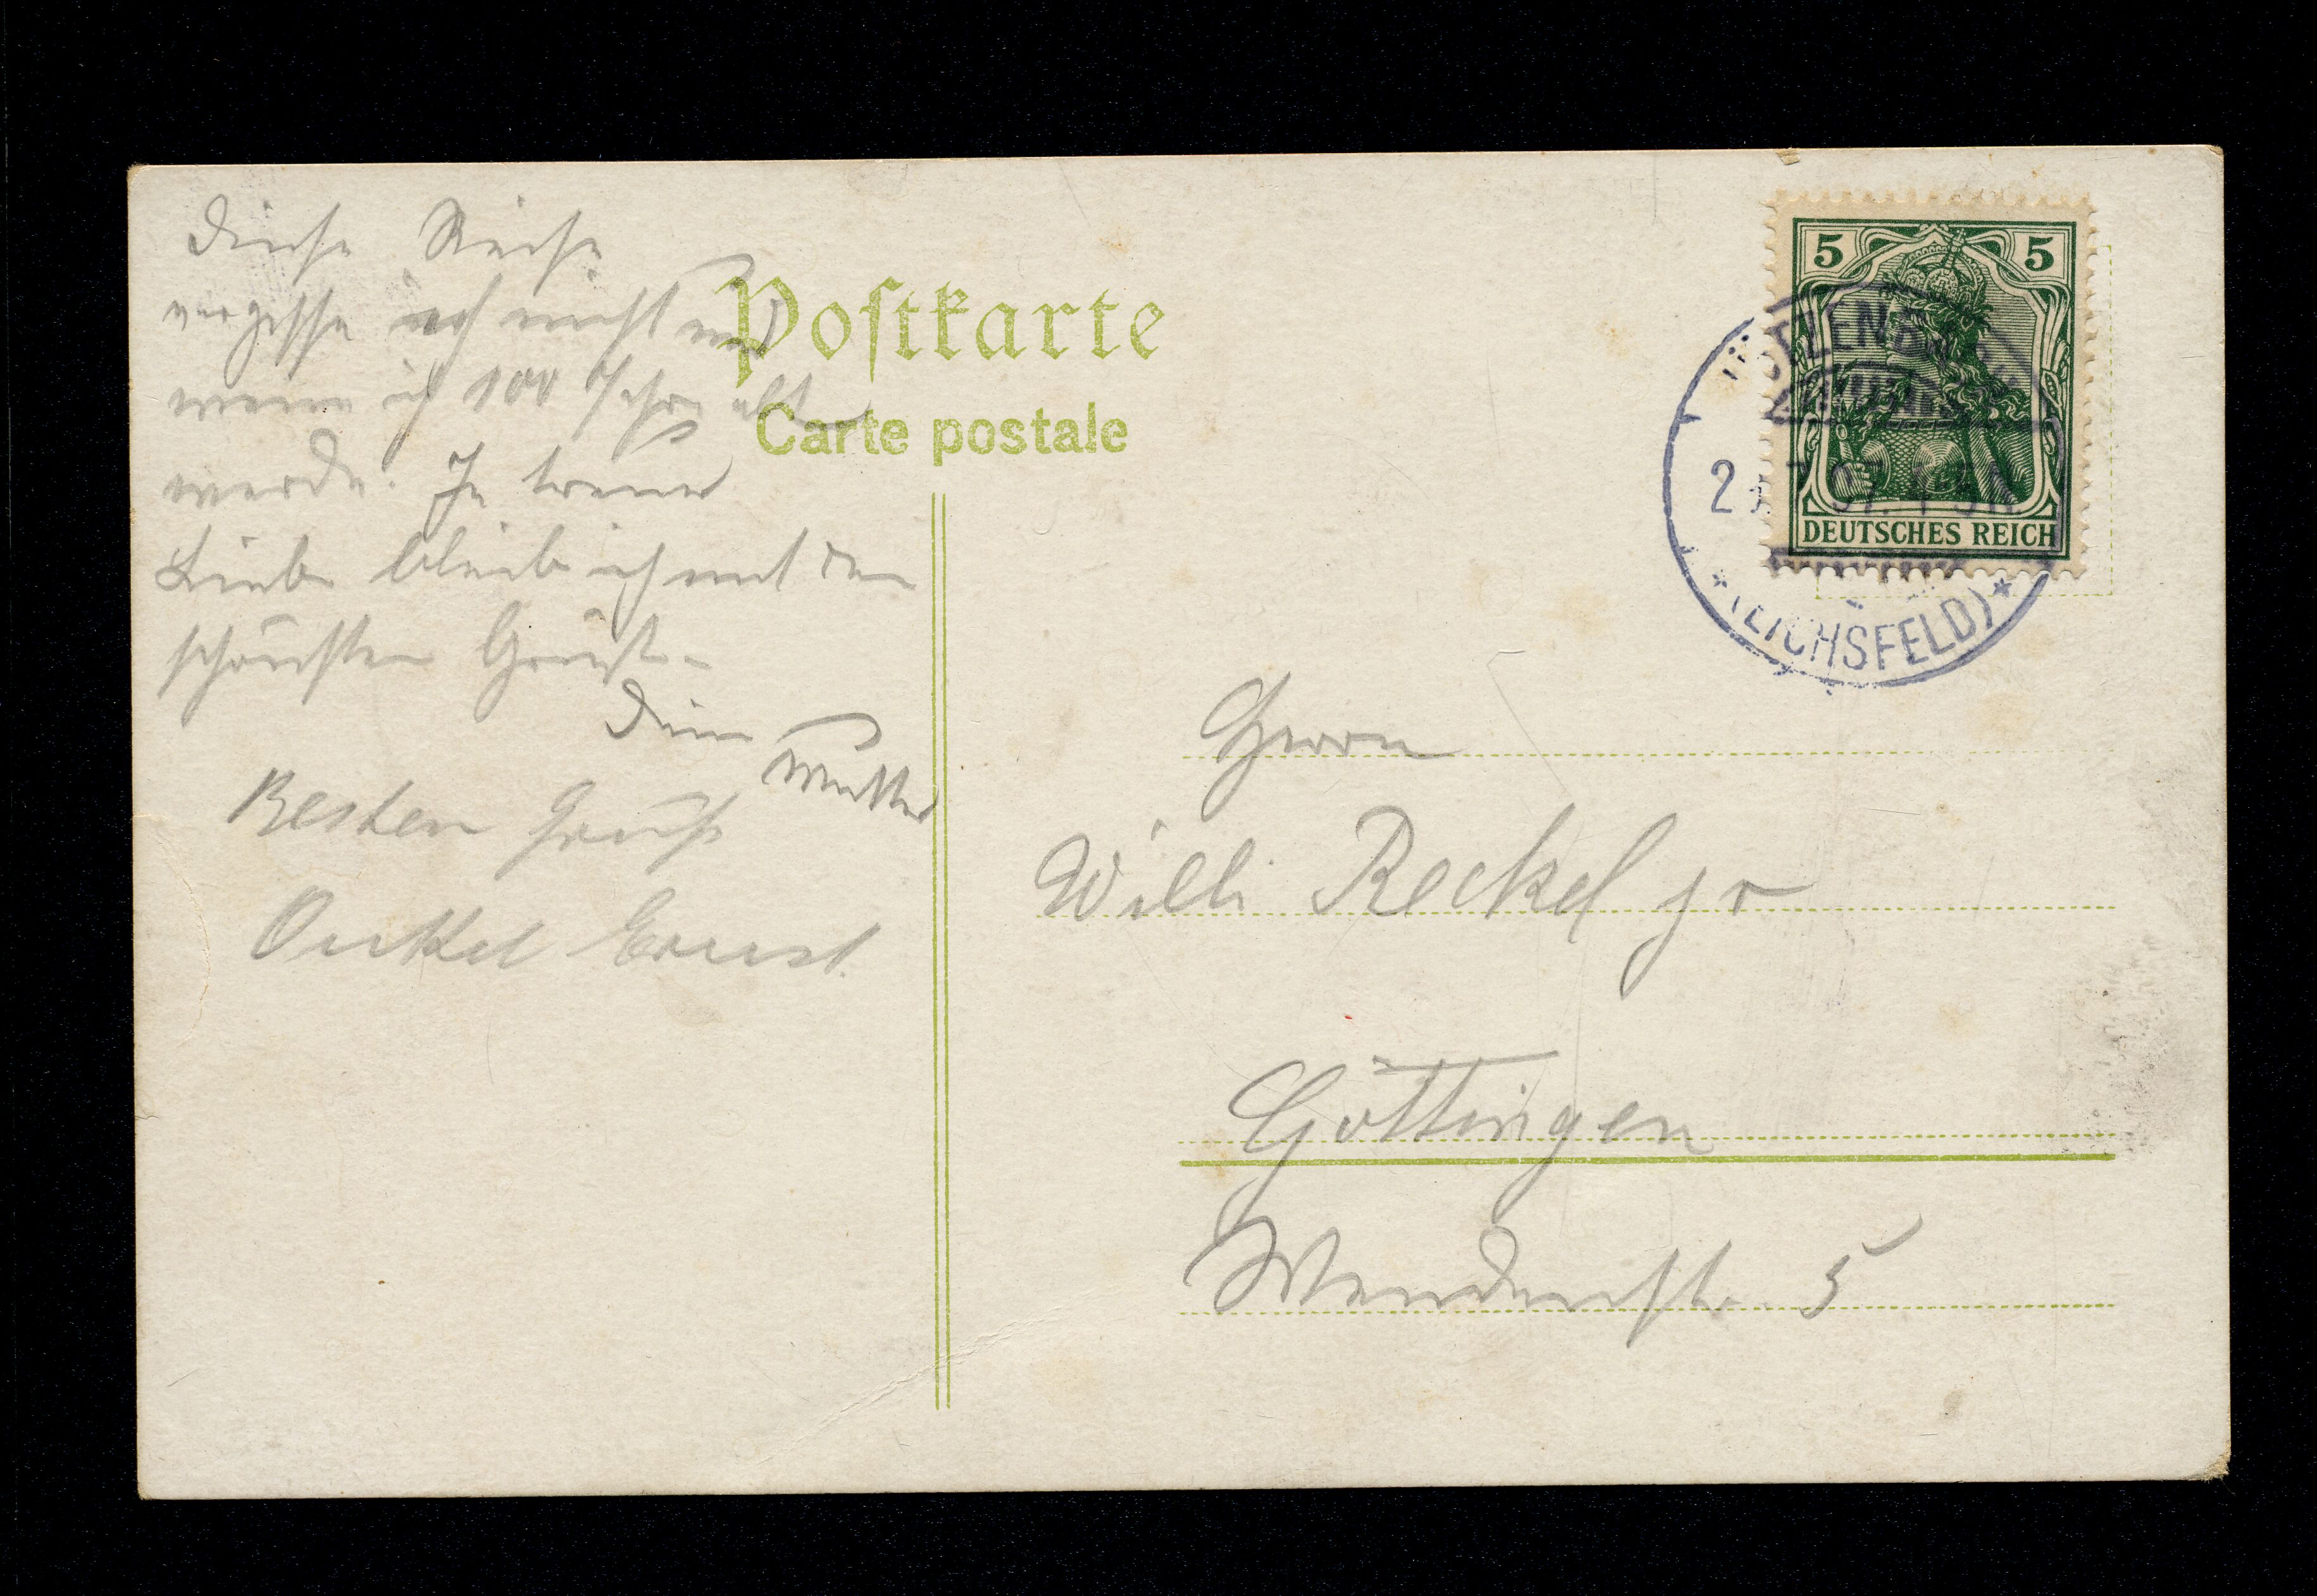 Diese Reise
vergesse ich nicht und
wenn ich 100 Jahre alt
werde. In treuer
Liebe bleibe ich mit den
schönsten Grüßen
Deine
Mutter
Besten Gruß
Onkel Ernst.
Postkarte
Carte postale
5 5
DEUTSCHES REICH
(EICHSFELD)
Herrn
Willi Reckel jr
Göttingen
Weenderstr. 5